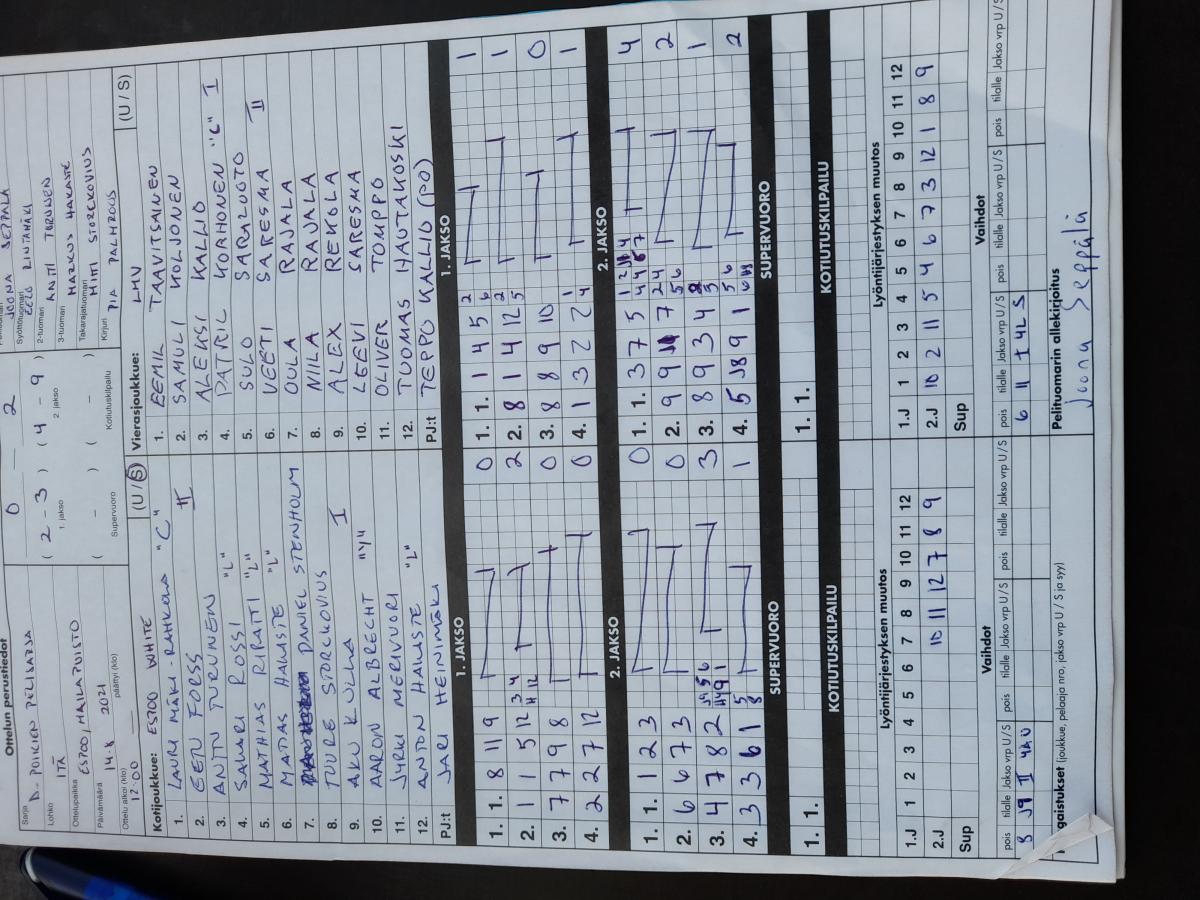 Ottelun perustiedot
Sarja D-POIKIEN PELIKARJA
Lohko ITÄ
Ottelupaikka ESPOO, HAILAPUISTO
Päivämäärä 14.8 2021
Ottelu alkoi (klo) 12:00 päättyi (klo)
0 2
( 2 - 3 ) ( 4 - 9 )
1. jakso 2. jakso
( - ) ( - )
Supervuoro Kotiutuskilpailu
JOONA SEPPÄLÄ
Syöttötuomari EELO RINTAMÄKI
2-tuomari ANTTI TURUNEN
3-tuomari MARKUS HAKASTE
Takarajatuomari
Kirjuri PIA PALMROOS
Kotijoukkue: ESPOO WHITE (U/S)
1. LAURI MÄKI-RAHKOLA "C"
2. EETU FORSS II
3. ANTTI TURUNEN
4. SAKARI ROSSI "L"
5. MATHIAS RIPATTI "L"
6. MATIAS HAKASTE "L"
7. DANIEL STENHOLM
8. TUURE STORCKOVIUS
9. AKU KULLA I
10. AARON ALBRECHT "V"
11. JYRKI MERIVUORI
12. ANTON HAKASTE "L"
PJ:t JARI HEINIMÄKI
Vierasjoukkue: LMV (U/S)
1. EEMIL TAAVITSAINEN
2. SAMULI KOLJONEN
3. ALEKSI KALLIO
4. PATRIK KORHONEN "C" I
5. SULO SARAJUOTO
6. VEETI SARESMA II
7. OULA RAJALA
8. NIILA RAJALA
9. ALEX REKOLA
10. LEEVI SARESMA
11. OLIVER TOMPPO
12. TUOMAS HAUTAKOSKI
PJ:t TEPPO KALLIO (PO)
1. JAKSO
1. 1. 8 11 9 0
2. 1 1 5 12 3 4 2
3. 7 7 9 8 0
4. 2 2 7 12 0
2. JAKSO
1. 1. 1 2 3 0
2. 6 6 7 3 0
3. 4 7 8 2 3
4. 3 3 6 1 5 8 1
SUPERVUORO
1. 1.
KOTIUTUSKILPAILU
1. JAKSO
1. 1. 1 4 5 2 6 1
2. 8 1 4 12 2 5 1
3. 8 8 9 10 0
4. 1 3 2 2 1 4 1
2. JAKSO
1. 1. 3 7 5 4
2. 9 9 7 2 4 5 6 2
3. 8 9 3 4 1
4. 5 J8 9 1 2
SUPERVUORO
1. 1.
KOTIUTUSKILPAILU
Lyöntijärjestyksen muutos
1.J 1 2 3 4 5 6 7 8 9 10 11 12
2.J 10 11 12 7 8 9
Sup
Vaihdot
pois tilalle Jakso vrp U/S pois tilalle Jakso vrp U/S pois tilalle Jakso vrp U/S
8 J9 II 4A U
Lyöntijärjestyksen muutos
1.J 1 2 3 4 5 6 7 8 9 10 11 12
2.J 10 2 11 5 4 6 7 3 12 1 8 9
Sup
Vaihdot
pois tilalle Jakso vrp U/S pois tilalle Jakso vrp U/S pois tilalle Jakso vrp U/S
6 11 I 4L S
gaistukset (joukkue, pelaaja nro, jakso vrp U / S ja syy)
Pelituomarin allekirjoitus
Joona Seppälä